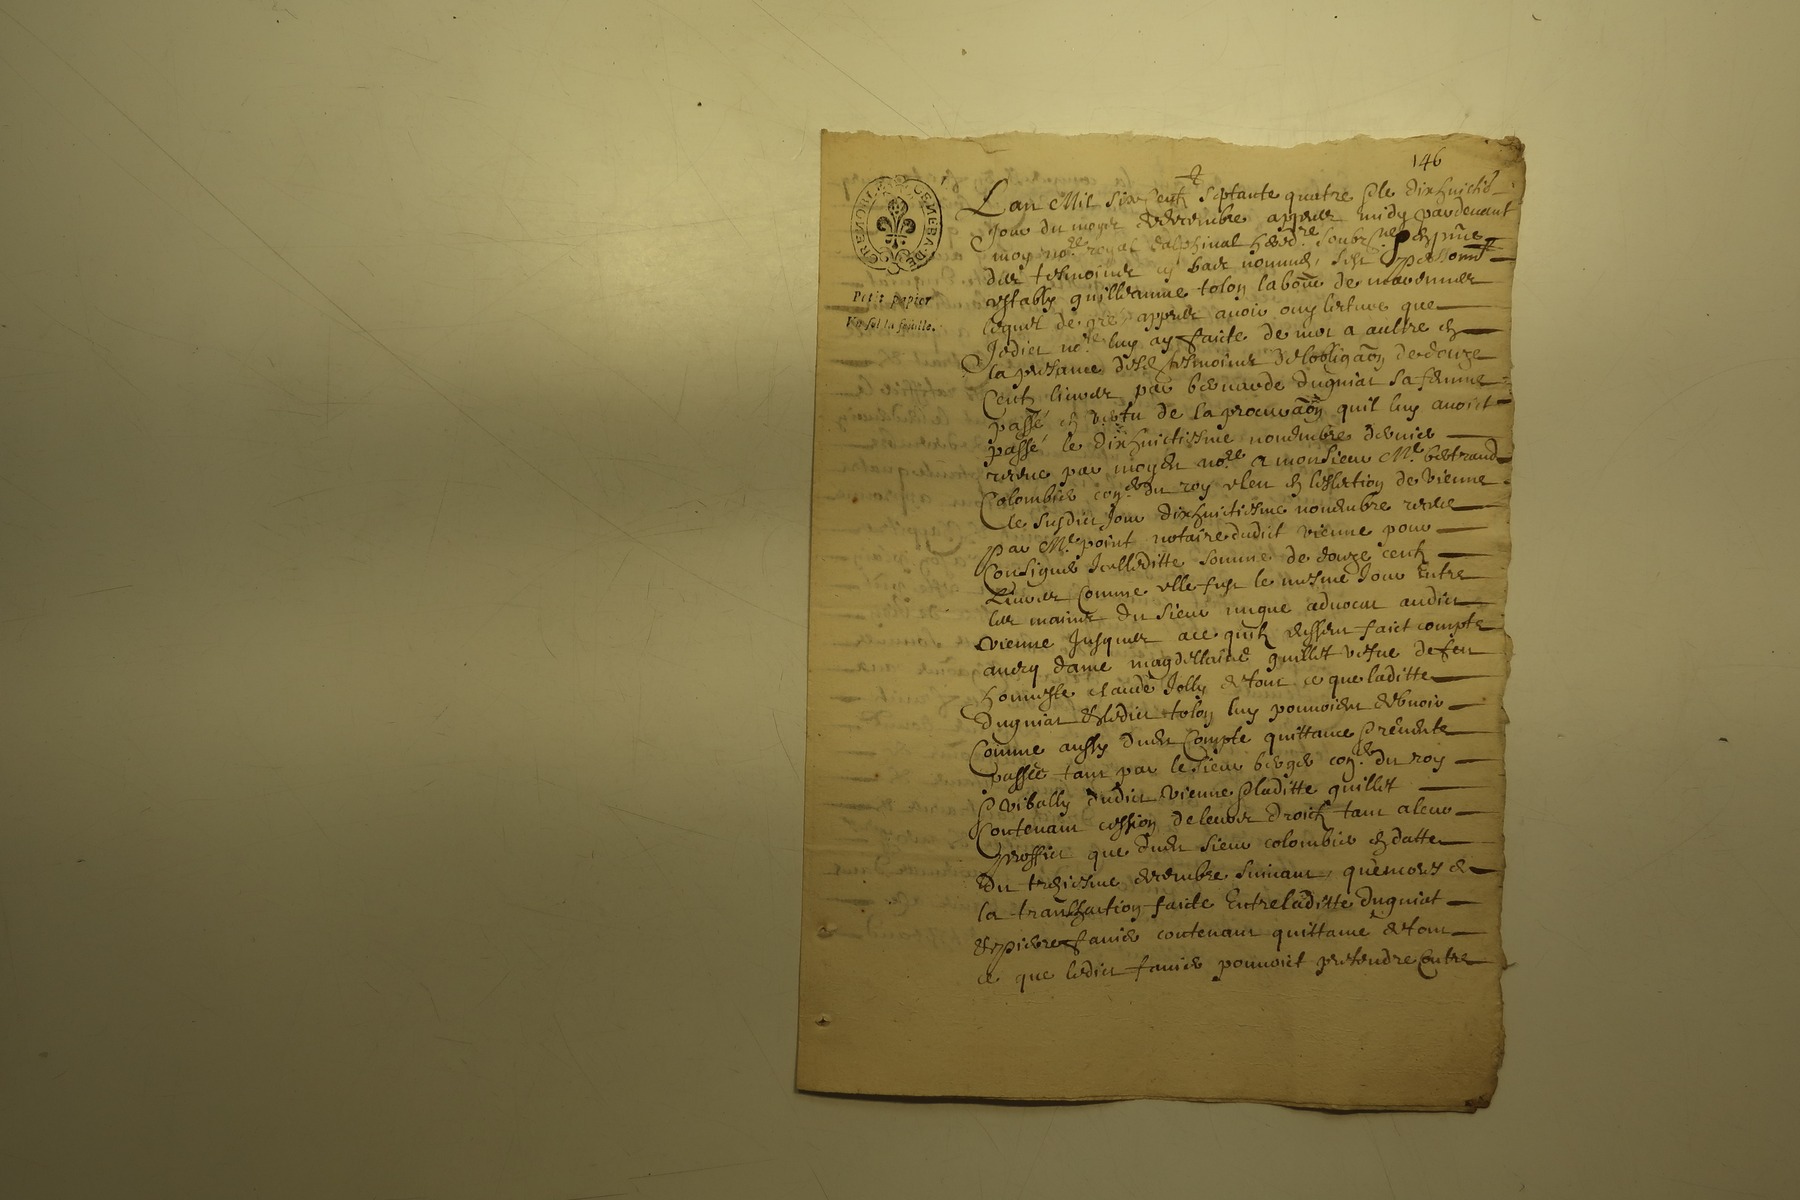 146
GRENOBLE GENERA. DE
Petit papier
Un sol la feuille.
Lan Mil six centz septante quatre & le dixhuictie
Jour du moys decembre apprez midy pardevant
moy no.re royal dalphinal hered.re soubz.né &
des tesmoinez cy bas nommez, sest personne
estably guilleaume tolon labor de
lequel de gré apprez avoir ouy lecture que
Jedict no.re luy ay faicte de mot a aultre en
la presance desd tesmoinez de lobligaon de douze
Centz livres par bernarde dugniat sa femme
passé en vertu de la procuraon quil luy avoict
passé le dixhuictiesme novembre dernier
receue par moyd no.re a monsieur M.e bertrand
Colombier con.er du roy esleu en leslection de vienne
le susdict Jour dixhuictiesme novembre receue
par M.e point notaire dudict vienne pour
Consigner Icelleditte somme de douze centz
livres comme elle fust le mesme Jour Entre
les mains du sieur advocat audict
vienne Jusques a ce quilz eussent faict compte
avecq dame magdellaine guillet vefve de feu
honneste claude Jolly de tout ce que laditte
dugniat & ledict tolon luy pouvoient debvoir
Comme aussy dud Compte quittance &
passée tant par le sieur berger con.er du roy
& vibally dudict vienne & laditte guillet
Contenant cession de leurs droictz tant a leur
proffict que dud sieur colombier en datte
du treiziesme decembre suivant, de
la transaction faicte Entre laditte dugniat
& pierre favier contenant quittance de tout
ce que ledict favier pouvoict pretendre Contre